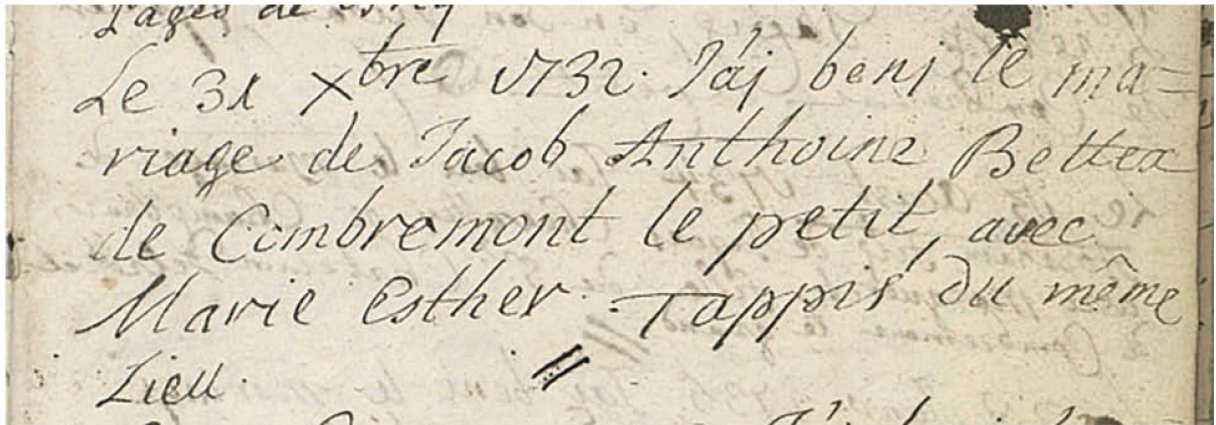 Le 31 Xbre 1732. J'aj benj le ma=
riage de Jacob Anthoine Bettex
de Combremont le petit, avec
Marie Esther Tappis du même
Lieu. //